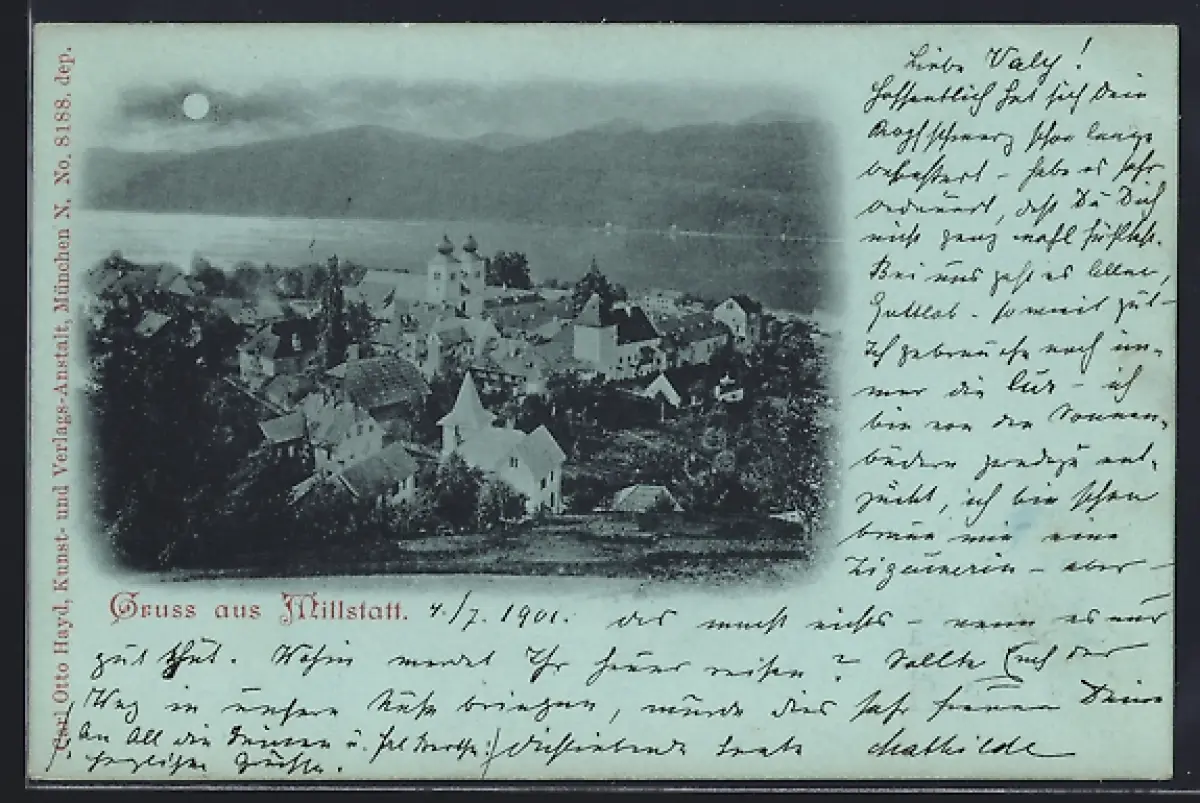 Carl Otto Hayd, Kunst- und Verlags-Anstalt, München N. No. 8188. dep.
Liebe Valy!
Hoffentlich hat sich Dein
Kopfschmerz schon lange
gebessert – habe es sehr
bedauert, daß Du Dich
nicht ganz wohl fühlst.
Bei uns geht es Allen,
Gottlob – soweit gut –
Ich gebrauche noch im-
mer die Cur – ich
bin von den Sonnen-
bädern geradezu ent-
zückt, ich bin schon
braun wie eine
Zigeunerin – aber –
Gruss aus Millstatt. 4./7. 1901. das macht nichts – wenn es nur
gut thut. Wohin werdet Ihr heuer reisen? Sollte Euch der
Weg in unsere Nähe bringen, würde dies sehr freuen Deine
An All die Deinen u. Dichliebende Tante Mathilde
herzliche Grüße.